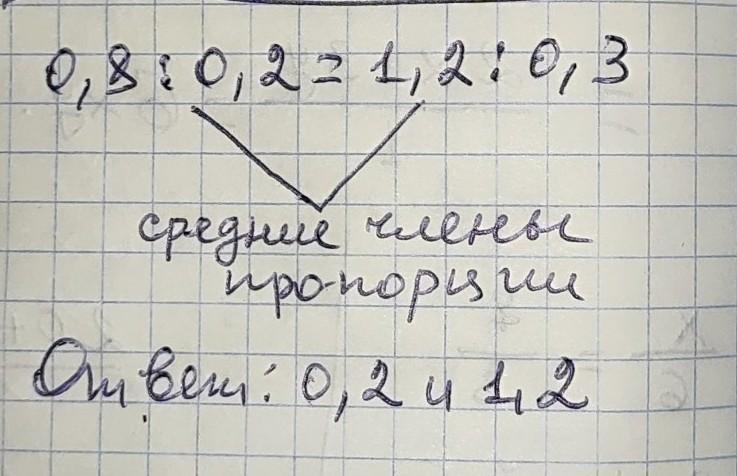 0,8 : 0,2 = 1,2 : 0,3
средние члены
пропорции
Ответ: 0,2 и 1,2